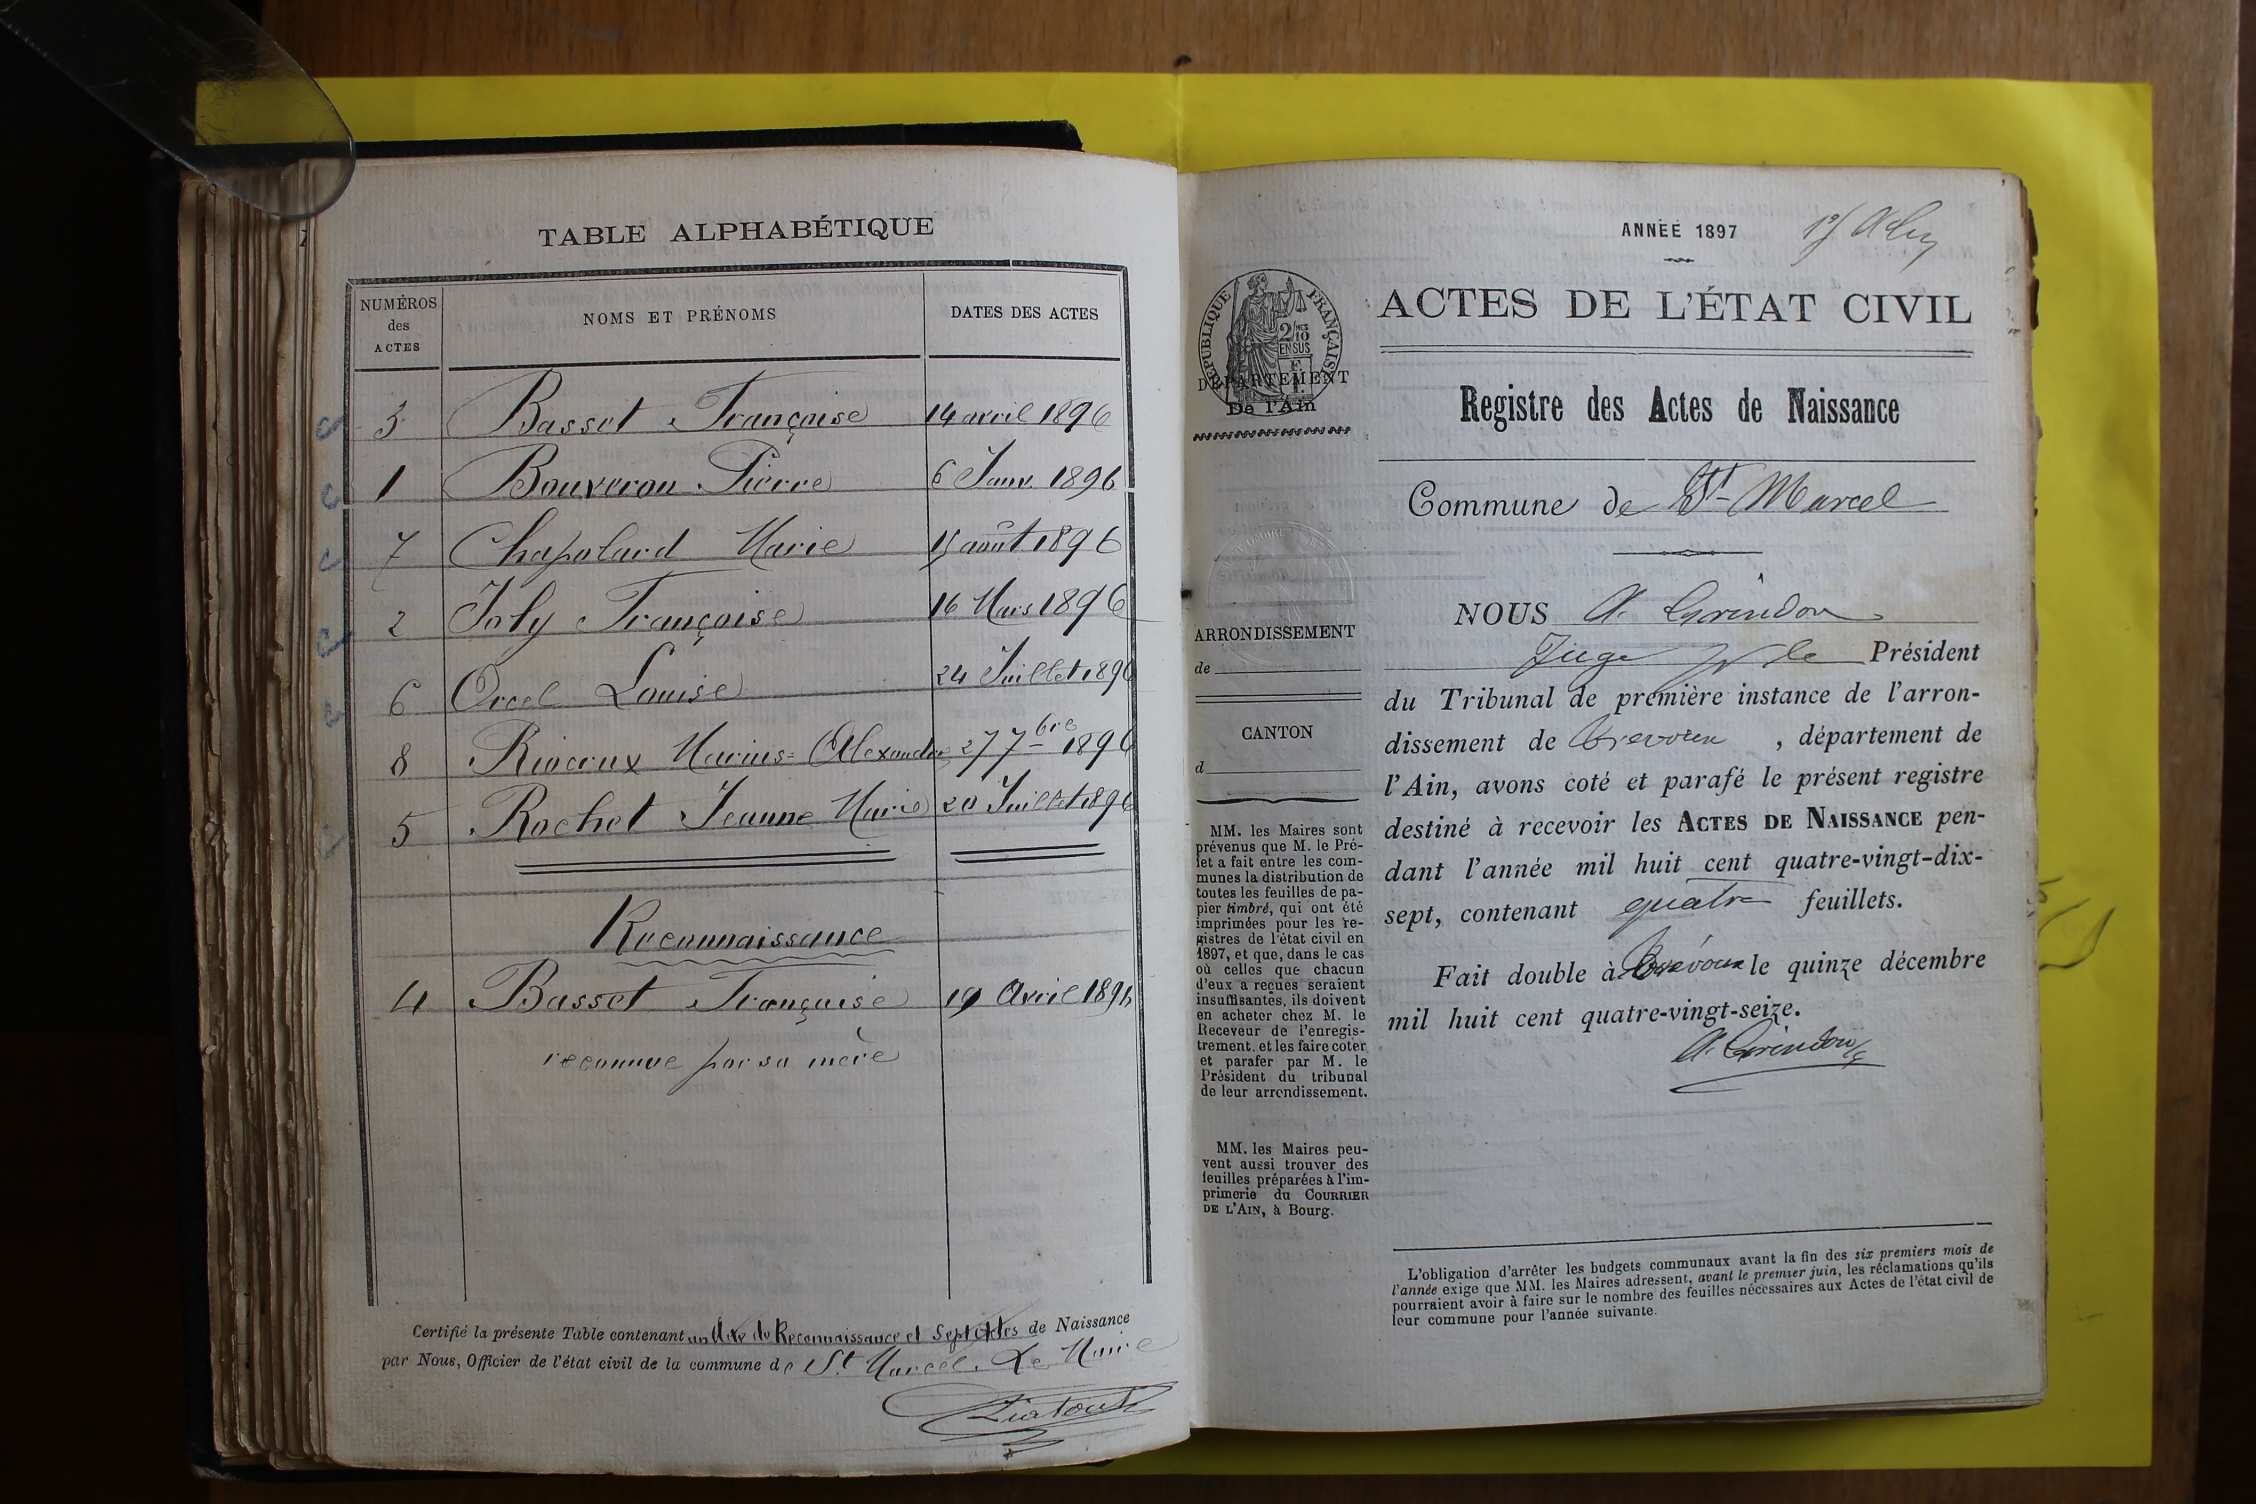 TABLE ALPHABÉTIQUE
NUMÉROS des ACTES
NOMS ET PRÉNOMS
DATES DES ACTES
3 Basset Françoise 14 avril 1896
1 Bouveron Pierre 6 Janv. 1896
7 Chapolard Marie 15 août 1896
2 Joly Françoise 16 Mars 1896
6 Orcel Louise 24 Juillet 1896
8 Rivoux Marius=Alexandre 27 7bre 1896
5 Rochet Jeanne Marie 20 Juillet 1896
Reconnaissance
4 Basset Françoise 19 Avril 1896
reconnue par sa mère
Certifié la présente Table contenant un Acte de Reconnaissance et Sept Actes de Naissance
par Nous, Officier de l'état civil de la commune de St Marcel. Le Maire
ANNÉE 1897
ACTES DE L'ÉTAT CIVIL
RÉPUBLIQUE FRANÇAISE
2/10 EN SUS
DÉPARTEMENT
De l'Ain
Registre des Actes de Naissance
Commune de St Marcel
ARRONDISSEMENT
de
CANTON
d
MM. les Maires sont
prévenus que M. le Pré-
fet a fait entre les com-
munes la distribution de
toutes les feuilles de pa-
pier timbré, qui ont été
imprimées pour les re-
gistres de l'état civil en
1897, et que, dans le cas
où celles que chacun
d'eux a reçues seraient
insuffisantes, ils doivent
en acheter chez M. le
Receveur de l'enregis-
trement, et les faire coter
et parafer par M. le
Président du tribunal
de leur arrondissement.
MM. les Maires peu-
vent aussi trouver des
feuilles préparées à l'im-
primerie du COURRIER
DE L'AIN, à Bourg.
NOUS A. Grindon
Juge pr le Président
du Tribunal de première instance de l'arron-
dissement de Trévoux, département de
l'Ain, avons coté et parafé le présent registre
destiné à recevoir les ACTES DE NAISSANCE pen-
dant l'année mil huit cent quatre-vingt-dix-
sept, contenant quatre feuillets.
Fait double à Trévoux le quinze décembre
mil huit cent quatre-vingt-seize.
A. Grindon
L'obligation d'arrêter les budgets communaux avant la fin des six premiers mois de
l'année exige que MM. les Maires adressent, avant le premier juin, les réclamations qu'ils
pourraient avoir à faire sur le nombre des feuilles nécessaires aux Actes de l'état civil de
leur commune pour l'année suivante.